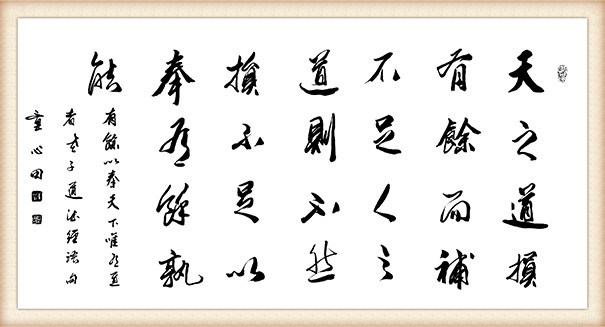 天之道損
有餘而補
不足人之
道則不然
損不足以
奉有餘孰
能
有餘以奉天下唯有道
者老子道德經語句
童心田